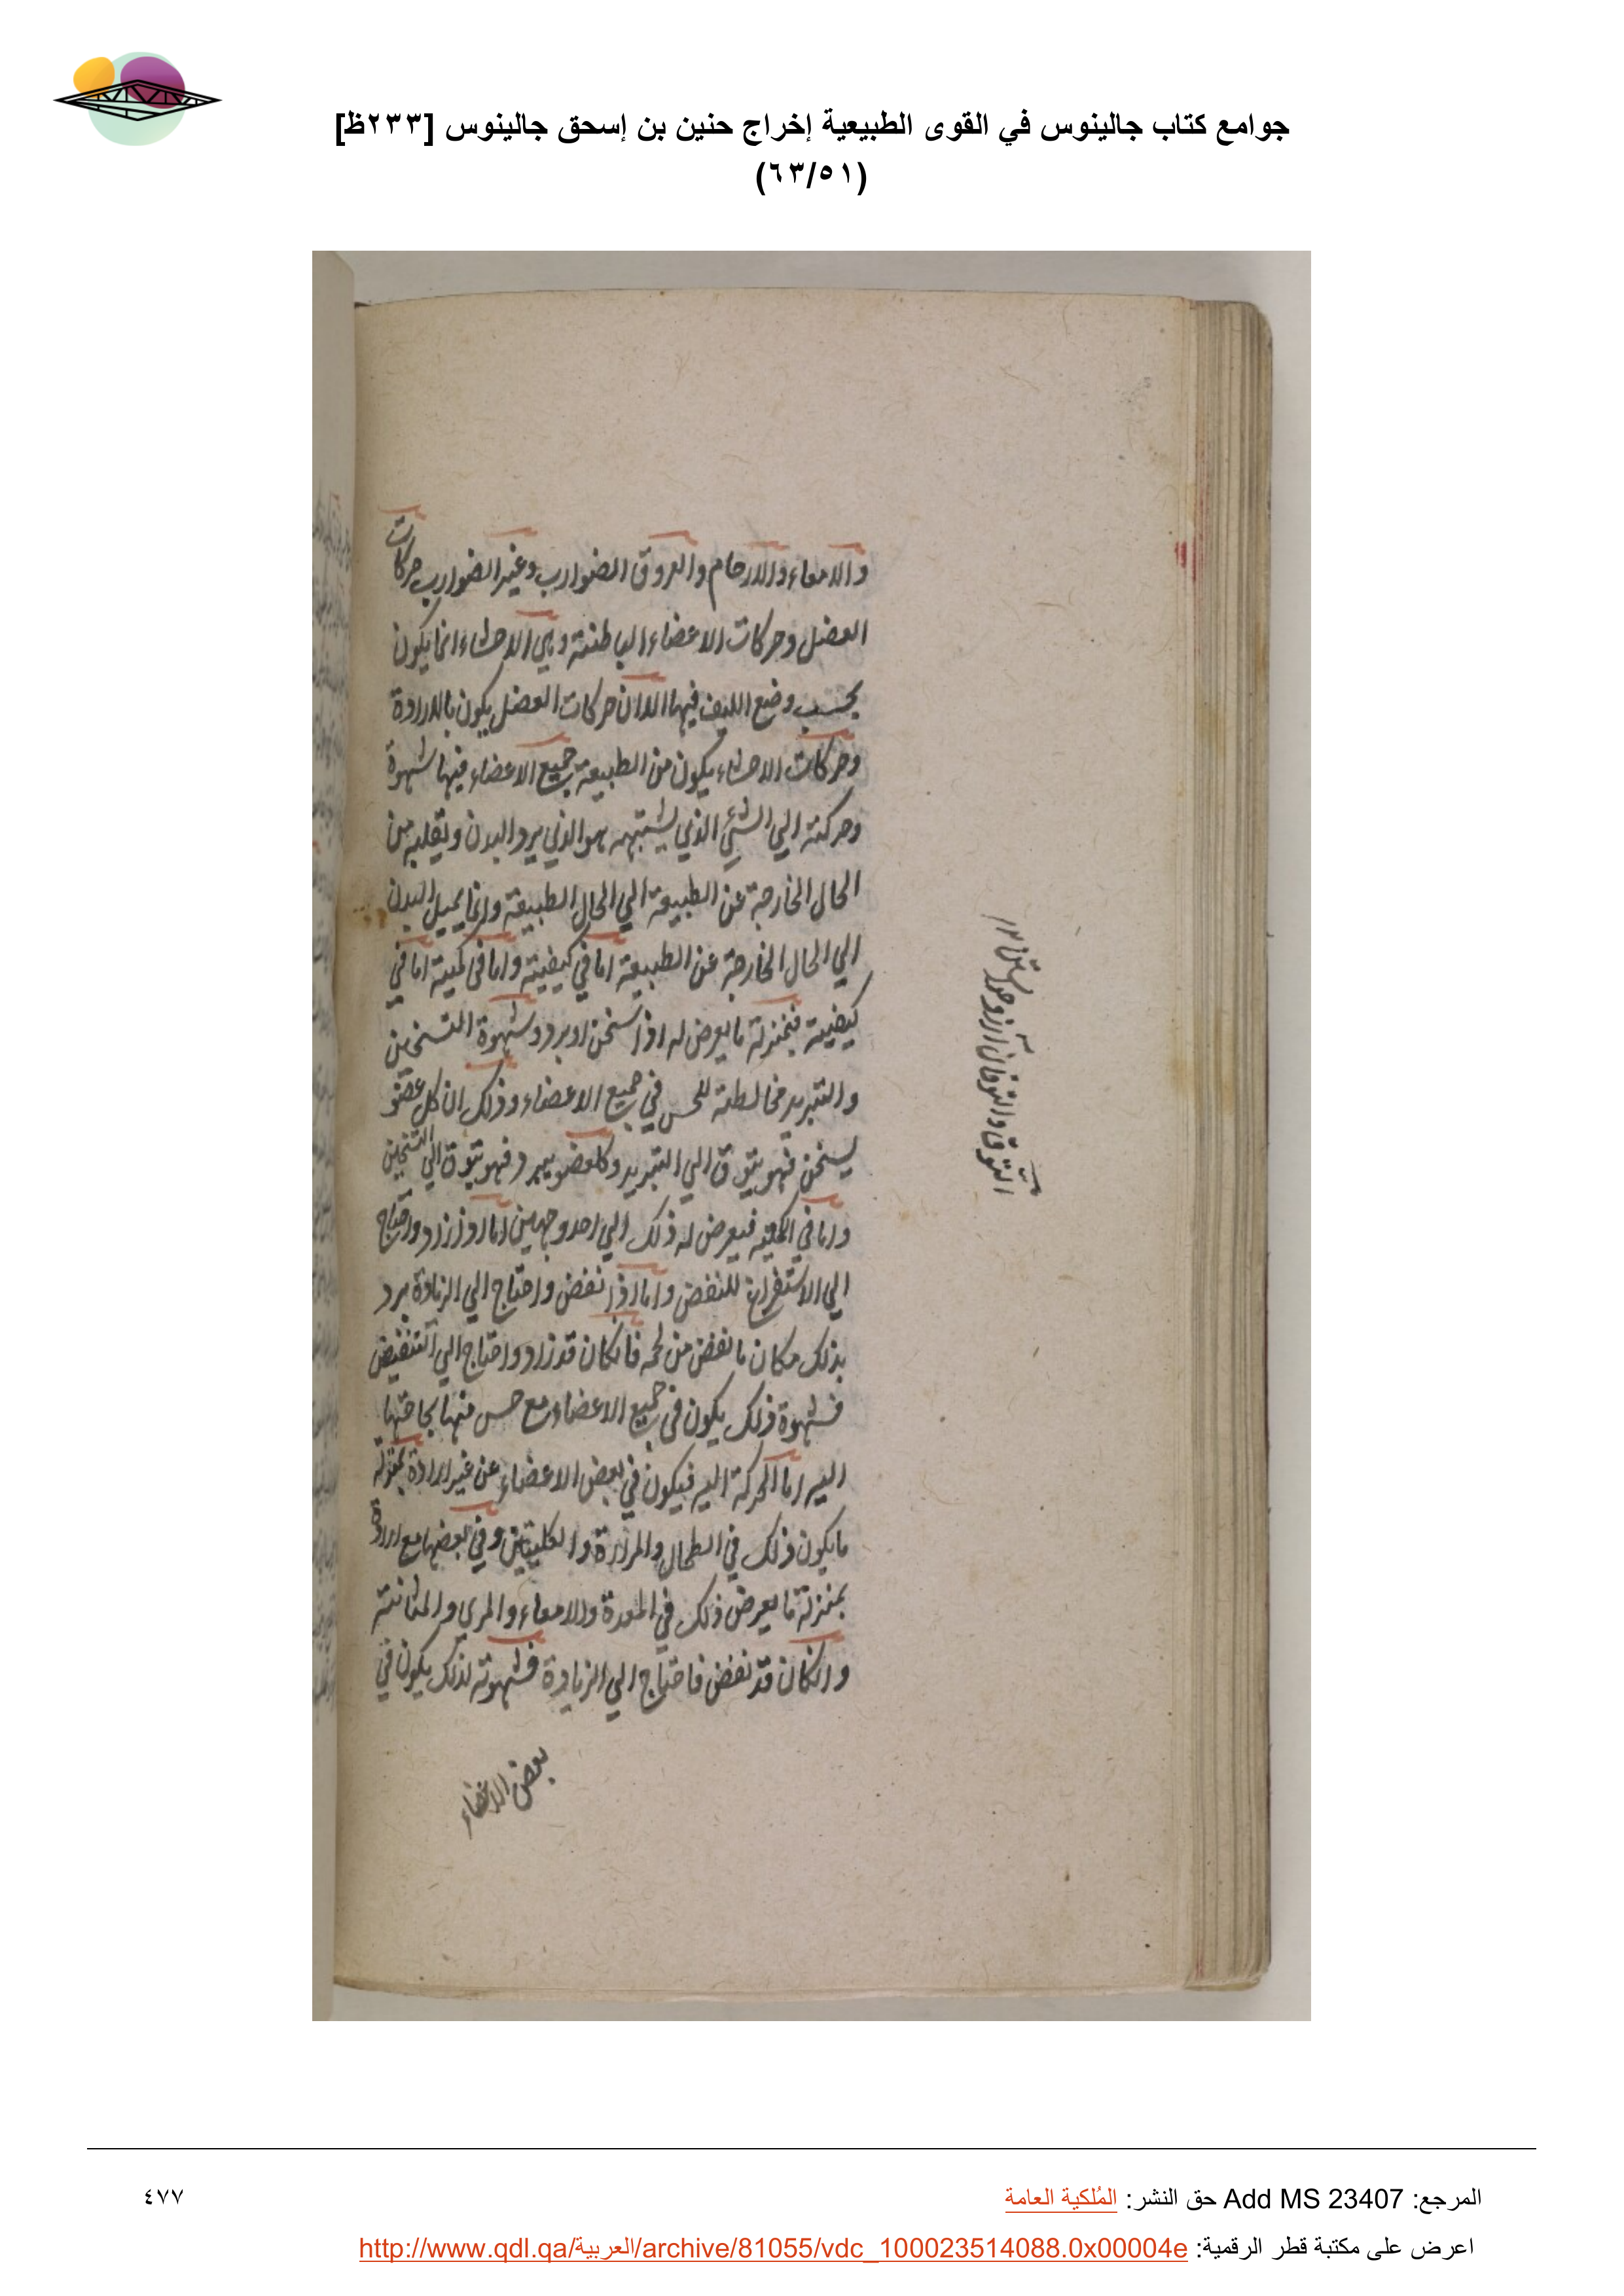 جوامع كتاب جالينوس في القوى الطبيعية إخراج حنين بن إسحق جالينوس [٢٣٣ظ]
(٦٣/٥١)
والامعاء والارحام والعروق الضوارب وغير الضوارب حركات
العضل وحركات الاعضاء الباطنة وهي الاحشاء انما يكون
بحسب وضع الليف فيها الا ان حركات العضل يكون بالارادة
وحركات الاحشاء يكون من الطبيعة جميع الاعضاء فيها شهوة
وحركة الي الشئ الذي يشتهيه هو الذي يرد البدن ويقلبه من
الحال الخارجة عن الطبيعة الي الحال الطبيعة وانما يميل البدن
الي الحال الخارجة عن الطبيعة اما في كيفية واما في كمية اما في
كيفية فبمنزلة ما يعرض له اذا سخن او برد وشهوة التسخين
والتبريد مخالطة للحس في جميع الاعضاء وذلك ان كل عضو
يسخن فهو يتوق الي التبريد وكل عضو يبرد فهو يتوق الي التسخين
واما في الكمية فيعرض له ذلك الي احد وجهين اما اذا زاد واحتاج
الي الاستفراغ للنفض واما اذا نقص واحتاج الي الزيادة يرد
بذلك مكان ما نقص من لحمه فان كان قد زاد واحتاج الي التنقيض
فشهوة ذلك يكون في جميع الاعضاء مع حس منها بحاجتها
اليه اما الحركة اليه فيكون في بعض الاعضاء عن غير ارادة بمنزلة
ما يكون ذلك في الطحال والمرارة والكليتين وفي بعضها مع ارادة
بمنزلة ما يعرض ذلك في المعدة والامعاء والمري والمثانة
وان كان قد نقص فاحتاج الي الزيادة فشهوته لذلك يكون في
بعض الاعضاء
المرجع: Add MS 23407 حق النشر: المُلكية العامة
٤٧٧
اعرض على مكتبة قطر الرقمية: http://www.qdl.qa/العربية/archive/81055/vdc_100023514088.0x00004e